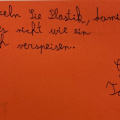 eln Sie Plastik, dami
es nicht wie ein
ch verspeisen.